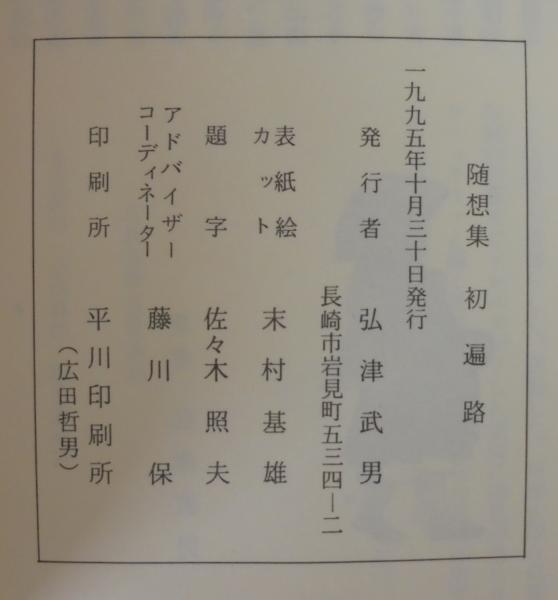 随想集 初遍路
一九九五年十月三十日発行
発行者 弘津武男
長崎市岩見町五三四―二
表紙絵
カット 末村基雄
題字 佐々木照夫
アドバイザー
コーディネーター 藤川保
印刷所 平川印刷所
（広田哲男）